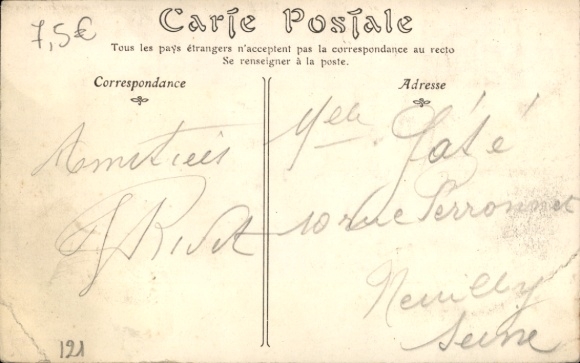 7,5€
Carte Postale
Tous les pays étrangers n'acceptent pas la correspondance au recto
Se renseigner à la poste.
Correspondance
Adresse
Amitiés
Rivet
Melle Gaté
10 rue Perronnet
Neuilly
Seine
121